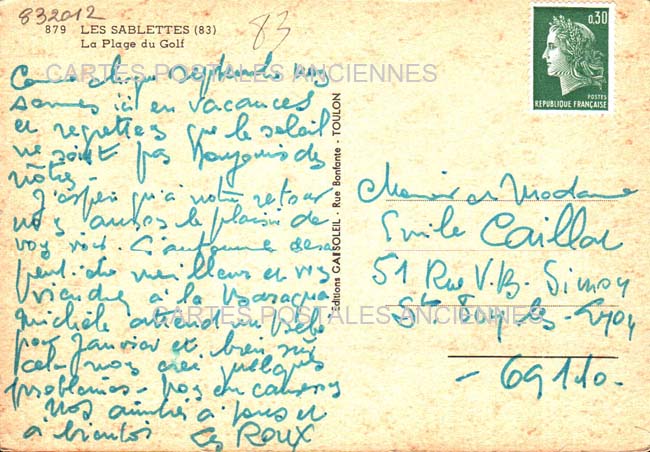 832012
83
879 LES SABLETTES (83)
La Plage du Golf
CARTES POSTALES ANCIENNES
Comme chaque Septembre nous
sommes ici en vacances
et regrettons que le soleil
ne soit pas toujours des
nôtres -
J'espère qu'à notre retour
nous aurons le plaisir de
vous voir. L'automne sera
peut-être meilleur et vous
viendrez à la
Michèle attend un Bébé
pour Janvier et bien sûr
cela nous crée quelques
problèmes -
Nos amitiés à tous et
à bientôt
Les ROUX
Editions GAI-SOLEIL - Rue Bonfante - TOULON
0,30
POSTES
REPUBLIQUE FRANÇAISE
Monsieur et Madame
Emile Caillat
51 Rue V.B. Simon
CARTES POSTALES ANCIENNES
Ste Foy-les-Lyon
- 69110.